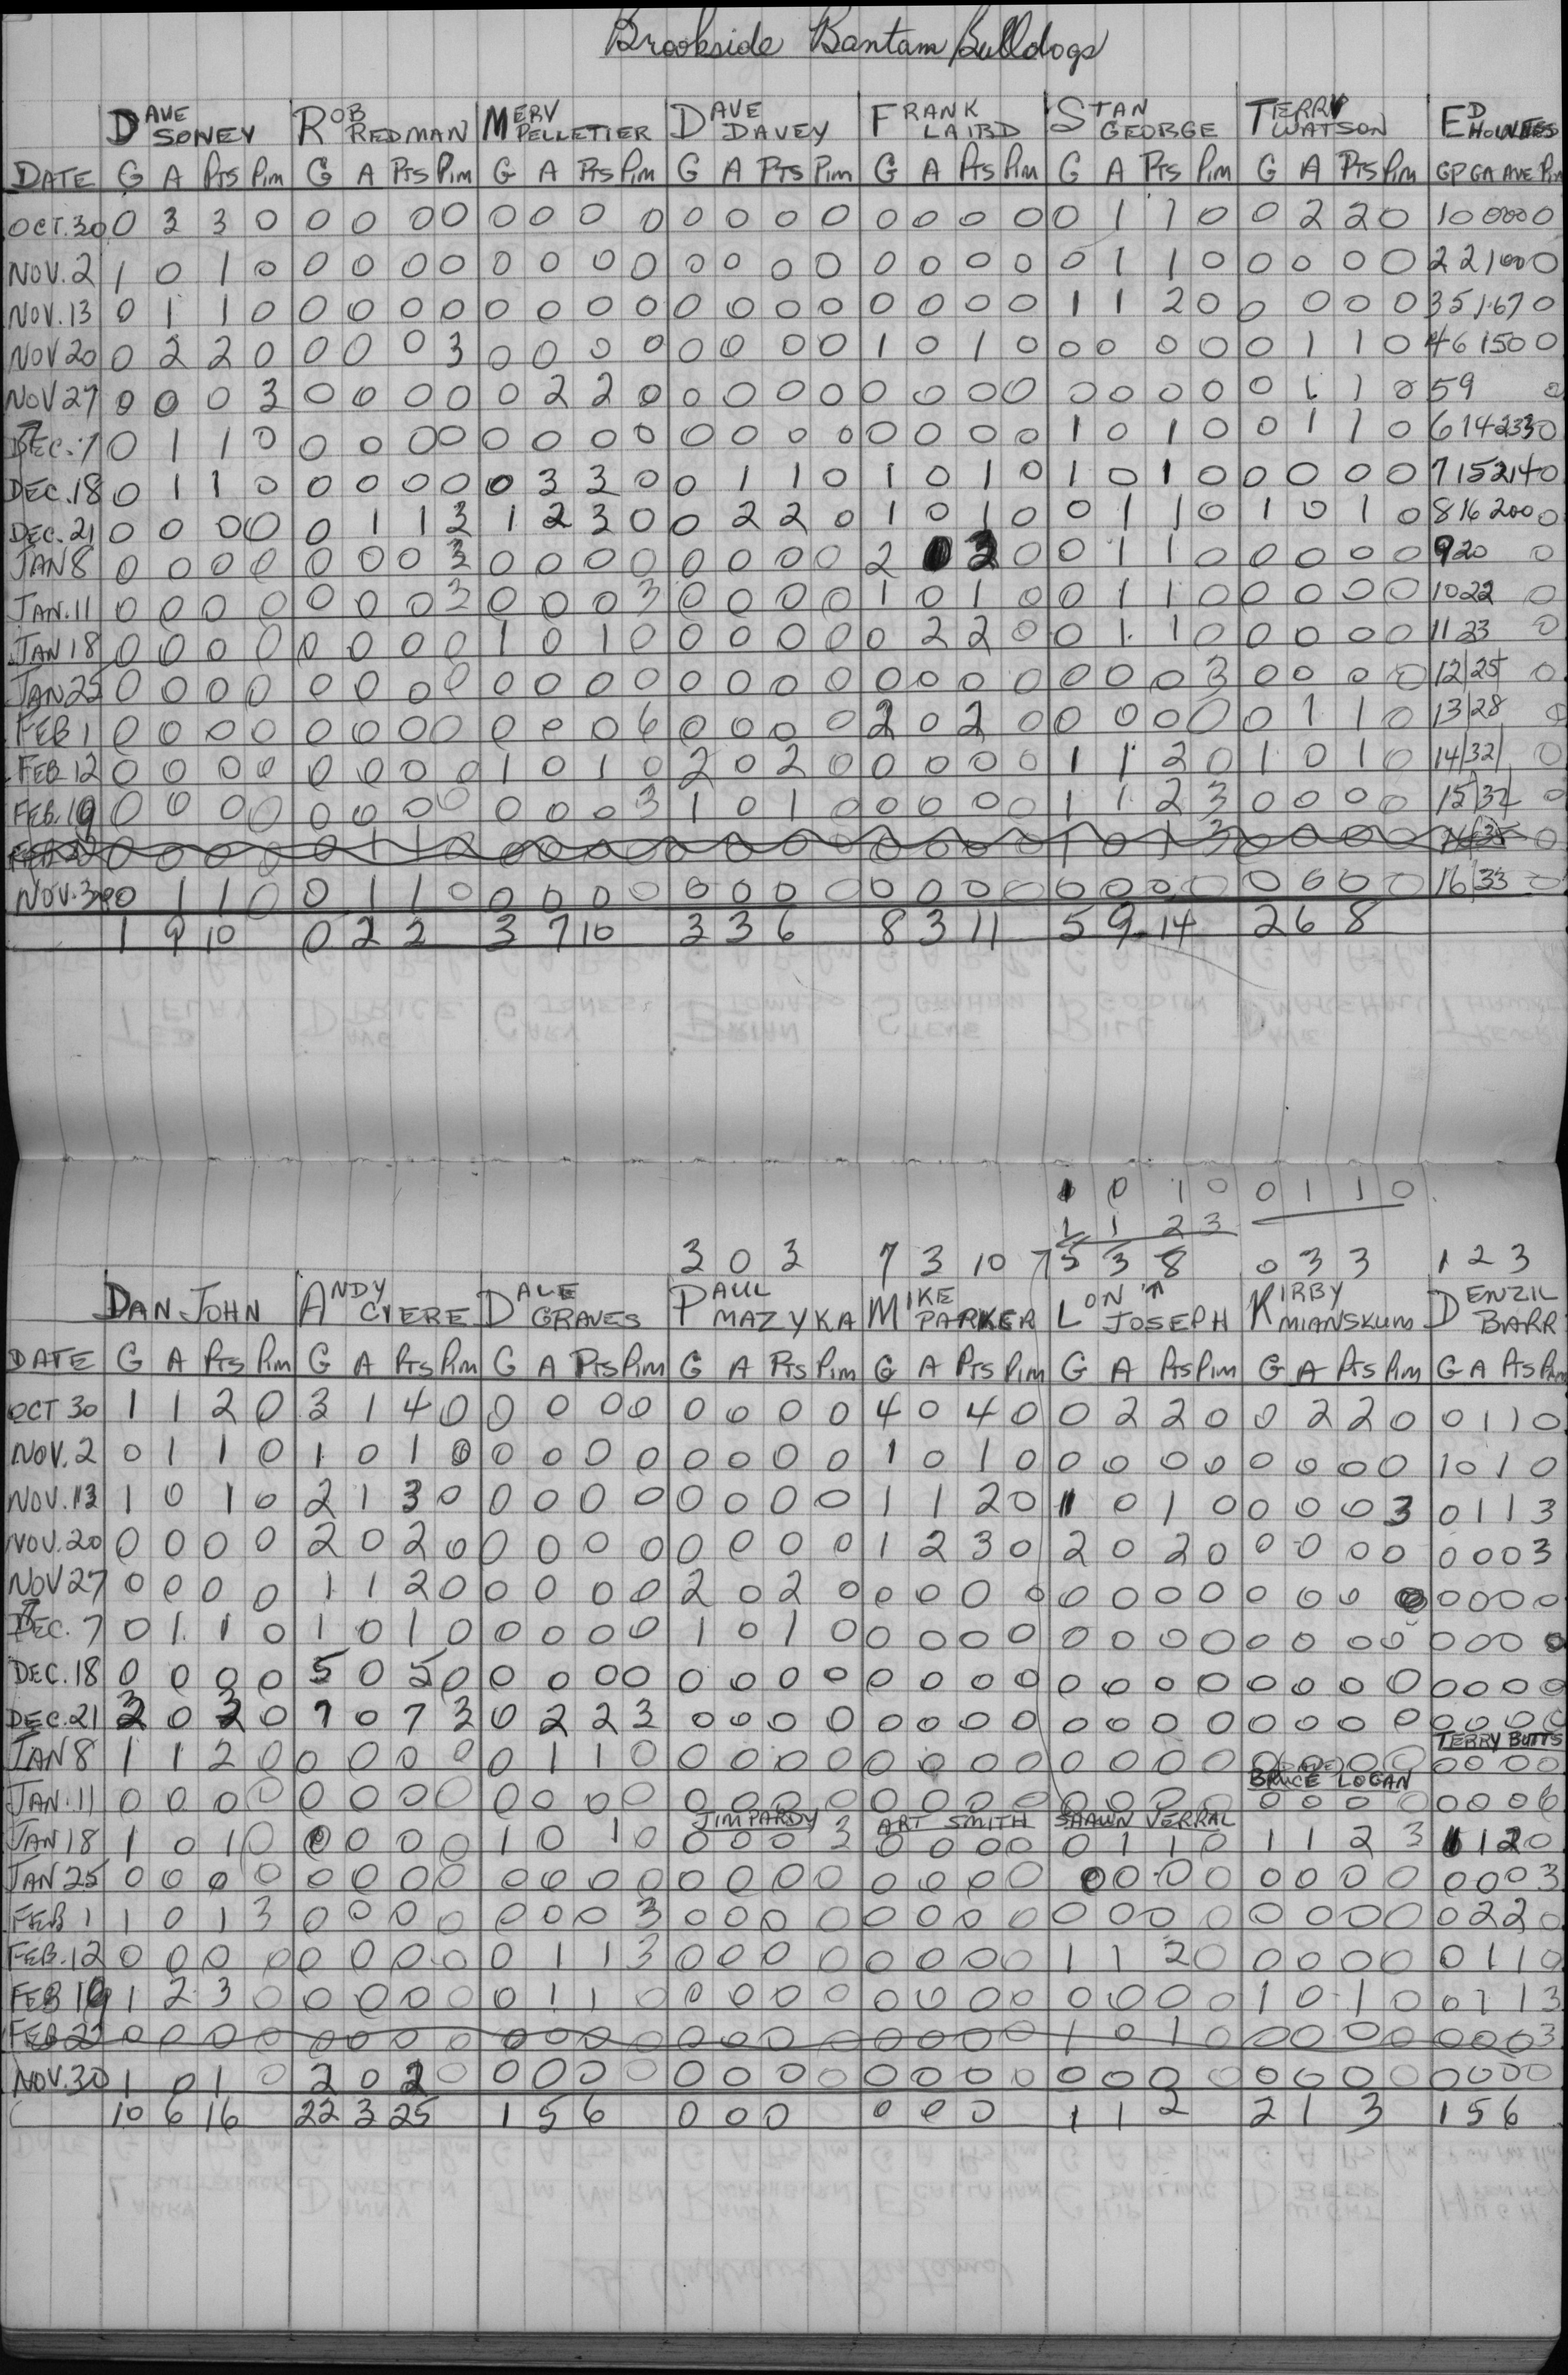 Brookside Bantam Bulldogs
DAVE SONEY ROB REDMAN MERV PELLETIER DAVE DAVEY FRANK LAIRD STAN GEORGE TERRY WATSON ED
DATE G A Pts Pim G A Pts Pim G A Pts Pim G A Pts Pim G A Pts Pim G A Pts Pim G A Pts Pim GP GA AVE Pim
OCT.30 0 3 3 0 0 0 0 0 0 0 0 0 0 0 0 0 0 0 0 0 0 1 1 0 0 2 2 0 1 0 000 0
NOV.2 1 0 1 0 0 0 0 0 0 0 0 0 0 0 0 0 0 0 0 0 0 1 1 0 0 0 0 0 2 2 1000
NOV.13 0 1 1 0 0 0 0 0 0 0 0 0 0 0 0 0 0 0 0 0 1 1 2 0 0 0 0 0 3 5 1.67 0
NOV 20 0 2 2 0 0 0 0 3 0 0 0 0 0 0 0 0 1 0 1 0 0 0 0 0 0 1 1 0 4 6 150 0
NOV 27 0 0 0 3 0 0 0 0 0 2 2 0 0 0 0 0 0 0 0 0 0 0 0 0 0 1 1 0 5 9 0
DEC.7 0 1 1 0 0 0 0 0 0 0 0 0 0 0 0 0 0 0 0 0 1 0 1 0 0 1 1 0 6 14 233 0
DEC.18 0 1 1 0 0 0 0 0 0 3 3 0 0 1 1 0 1 0 1 0 1 0 1 0 0 0 0 0 7 15 214 0
DEC.21 0 0 0 0 0 1 1 3 1 2 3 0 0 2 2 0 1 0 1 0 0 1 1 0 1 0 1 0 8 16 200 0
JAN 8 0 0 0 0 0 0 0 3 0 0 0 0 0 0 0 0 2 0 0 1 1 0 0 0 0 0 9 20 0
JAN.11 0 0 0 0 0 0 0 3 0 0 0 3 0 0 0 0 1 0 1 0 0 1 1 0 0 0 0 0 10 22 0
JAN 18 0 0 0 0 0 0 0 0 1 0 1 0 0 0 0 0 0 2 2 0 0 1 1 0 0 0 0 0 11 23 0
JAN 25 0 0 0 0 0 0 0 0 0 0 0 0 0 0 0 0 0 0 0 0 0 0 0 3 0 0 0 0 12 25 0
FEB 1 0 0 0 0 0 0 0 0 0 0 0 6 0 0 0 0 2 0 2 0 0 0 0 0 0 1 1 0 13 28 0
FEB 12 0 0 0 0 0 0 0 0 1 0 1 0 2 0 2 0 0 0 0 0 1 1 2 0 1 0 1 0 14 32 0
FEB.19 0 0 0 0 0 0 0 0 0 0 0 3 1 0 1 0 0 0 0 0 1 1 2 3 0 0 0 0 15 32 0
0 0 0 0 0 1 1 0 0 0 0 0 0 0 0 0 0 0 0 1 0 1 3 0 0 0 0 0
NOV.30 0 1 1 0 0 1 1 0 0 0 0 0 0 0 0 0 0 0 0 0 0 0 0 0 0 0 0 0 16 33 0
1 9 10 0 2 2 3 7 10 3 3 6 8 3 11 5 9 14 2 6 8
1 0 1 0 0 1 1 0
1 1 2 3
3 0 3 7 3 10 5 3 8 0 3 3 1 2 3
DAN JOHN ANDY CYERE DALE GRAVES PAUL MAZYKA MIKE PARKER LON JOSEPH KIRBY MIANSKUM DENZIL BARR
DATE G A Pts Pim G A Pts Pim G A Pts Pim G A Pts Pim G A Pts Pim G A Pts Pim G A Pts Pim G A Pts Pim
OCT 30 1 1 2 0 3 1 4 0 0 0 0 0 0 0 0 0 4 0 4 0 0 2 2 0 0 2 2 0 0 1 1 0
NOV.2 0 1 1 0 1 0 1 0 0 0 0 0 0 0 0 0 1 0 1 0 0 0 0 0 0 0 0 0 1 0 1 0
NOV.13 1 0 1 0 2 1 3 0 0 0 0 0 0 0 0 0 1 1 2 0 1 0 1 0 0 0 0 3 0 1 1 3
NOV.20 0 0 0 0 2 0 2 0 0 0 0 0 0 0 0 0 1 2 3 0 2 0 2 0 0 0 0 0 0 0 0 3
NOV 27 0 0 0 0 1 1 2 0 0 0 0 0 2 0 2 0 0 0 0 0 0 0 0 0 0 0 0 0 0 0 0 0
DEC.7 0 1 1 0 1 0 1 0 0 0 0 0 1 0 1 0 0 0 0 0 0 0 0 0 0 0 0 0 0 0 0 0
DEC.18 0 0 0 0 5 0 5 0 0 0 0 0 0 0 0 0 0 0 0 0 0 0 0 0 0 0 0 0 0 0 0 0
DEC.21 3 0 3 0 7 0 7 3 0 2 2 3 0 0 0 0 0 0 0 0 0 0 0 0 0 0 0 0 0 0 0 0
TERRY BUTTS
JAN 8 1 1 2 0 0 0 0 0 0 1 1 0 0 0 0 0 0 0 0 0 0 0 0 0 0 0 0 0 0 0 0
BRUCE LOGAN
JAN.11 0 0 0 0 0 0 0 0 0 0 0 0 0 0 0 0 0 0 0 0 0 0 0 0 0 0 0 0 0 0 0 6
JIM PARDY ART SMITH SHAWN VERRAL
JAN 18 1 0 1 0 0 0 0 0 1 0 1 0 0 0 0 3 0 0 0 0 0 1 1 0 1 1 2 3 1 1 2 0
JAN 25 0 0 0 0 0 0 0 0 0 0 0 0 0 0 0 0 0 0 0 0 0 0 0 0 0 0 0 0 0 0 0 3
FEB 1 1 0 1 3 0 0 0 0 0 0 0 3 0 0 0 0 0 0 0 0 0 0 0 0 0 0 0 0 0 2 2 0
FEB.12 0 0 0 0 0 0 0 0 0 1 1 3 0 0 0 0 0 0 0 0 1 1 2 0 0 0 0 0 0 1 1 0
FEB 19 1 2 3 0 0 0 0 0 0 1 1 0 0 0 0 0 0 0 0 0 0 0 0 0 1 0 1 0 0 1 1 3
FEB 22 0 0 0 0 0 0 0 0 0 0 0 0 0 0 0 0 0 0 0 0 1 0 1 0 0 0 0 0 0 0 0 3
NOV.30 1 0 1 0 2 0 2 0 0 0 0 0 0 0 0 0 0 0 0 0 0 0 0 0 0 0 0 0 0 0 0 0
10 6 16 22 3 25 1 5 6 0 0 0 0 0 0 1 1 2 2 1 3 1 5 6